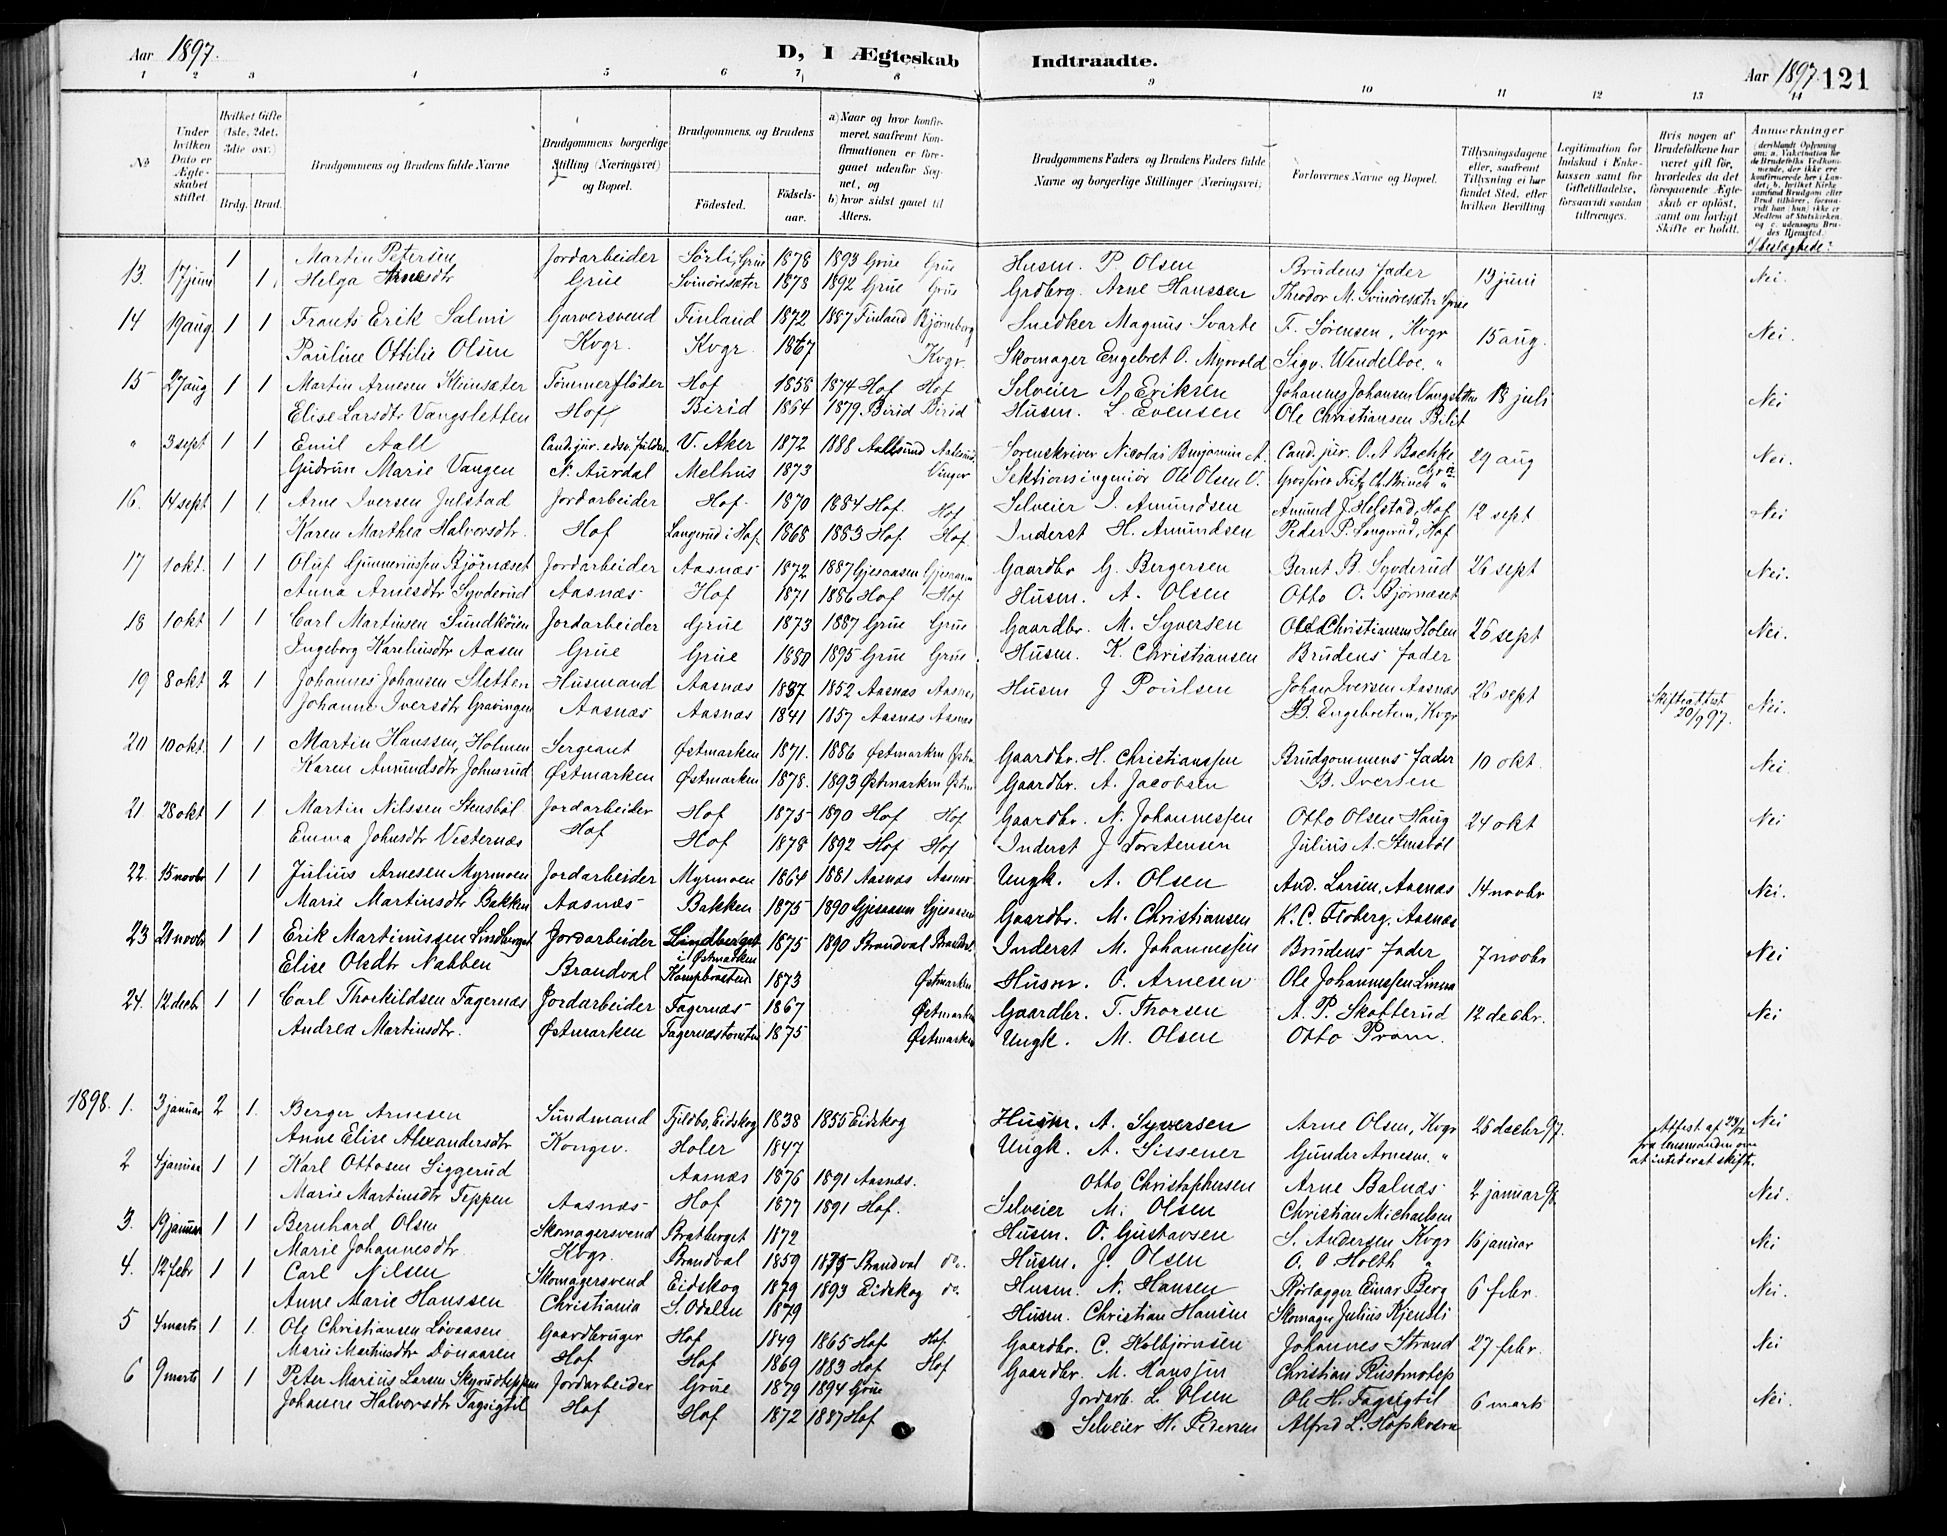 Aar 1897. D, I Ægteskab Indtraadte. Aar 1897. 121
1 2 3 4 5 6 7 8 9 10 11 12 13 14
No Under hvilken Dato er Ægteskabet stiftet. Hvilket Gifte (1ste, 2det, 3die osv.) Brdg. Brud. Brudgommens og Brudens fulde Navne Brudgommens borgerlige Stilling (Næringsvei) og Bopæl. Brudgommens og Brudens Fødested. Fødselsaar. a) Naar og hvor konfirmeret, saafremt Konfirmationen er foregaaet udenfor Sognet, og b) hvor sidst gaaet til Alters. Brudgommens Faders og Brudens Faders fulde Navne og borgerlige Stillinger (Næringsvei) Forlovernes Navne og Bopæl. Tillysningsdagene eller, saafremt Tillysning ei har fundet Sted, efter hvilken Bevilling Legitimation for Indskud i Enkekassen samt for Giftetilladelse, forsaavidt saadan tiltrænges. Hvis nogen af Brudefolkene har været gift før, hvorledes da det foregaaende Ægteskab er opløst, samt om lovligt Skifte er holdt. Anmerkninger
beslægtede?
13. 17 juni 1 Martin Petersen Jordarbeider Sørli, Grue 1878 1893 Grue Grue Husm. P. Olsen Brudens fader 13 juni Nei.
1 Helga Arnesdtr Grue Svinøresæter 1878 1892 Grue Grue Grdbrg. Arne Hanssen Theodor M. Svinøresæter Grue
14 19 aug 1 1 Frants Erik Salmi Garversvend Finland 1872 1887 Finland Bjørneborg Snedker Magnus Svarte F. Sørensen, Kvgr 15 aug. Nei.
Pauline Ottilie Olsen Kvgr. Kvgr 1867 Kvgr. Skomager Engebret O. Myrvold Sigv. Wendelboe, "
15 27 aug 1 1 Martin Arnesen Kleinsæter Tømmerfløder Hof 1858 1874 Hof Hof Selveier A. Eriksen Johannes Johansen Vangsletten 18 juli Nei
Elise Larsdtr Vangsletten Hof Birid 1864 1879. Birid Birid Husm. L. Evensen Ole Christiansen Bilit
" 3 sept 1 1 Emil Aall Cand. jur. edsv. fuldm. V. Aker 1872 1888 Aalesund Aalesund Sorenskriver Nicolai Benjamin A. Cand. jur. O. A Bachke 29 aug Nei.
Gudrun Marie Vangen N. Aurdal Melhus 1873 Vinger Sektionsingeniør Ole Olsen V. Grosserer Fritz Ch. Brinch "
16. 14 sept 1 1 Arne Iversen Julstad Jordarbeider Hof. 1870 1884 Hof. Hof Selveier I. Amundsen Amund J. Helstad, Hof 12 sept Nei
Karen Marthea Halvorsdtr. Hof Langerud i Hof. 1868 1883 Hof Hof. Inderst H. Amundsen Peder P. Langerud, Hof
17 1 okt. 1 1 Oluf Gunneriussen Bjørnæset Jordarbeider Aasnæs 1872 1887 Gjesaasen Gjesaasen Gaardbr G. Bergersen Bernt B. Syvderud 26 sept Nei.
Anna Arnesdtr Syvderud Aasnæs Hof 1871 1886 Hof Hof Husm. A. Olsen Otto O. Bjørnæset
18 1 okt 1 1 Carl Martinsen Sundkøien Jordarbeider Grue 1873 1887 Grue Grue Gaardbr. M. Syversen Ole Christiansen Holen 26 sept Nei.
Ingeborg Kareliusdtr Aasen Grue Grue 1880 1895 Grue Grue Husm. K. Christiansen Brudens fader
19 8 okt 2 1 Johannes Johansen Sletten Husmand Aasnæs 1837 1852 Aasnæs Aasnæs Husm J Poulsen Johan Iversen Aasnæs 26 sept Skifteattest 20/9 97. Nei.
Johanne Iversdtr Gravingen Aasnæs Aasnæs 1841 1857 Aasnæs Aasnæs B. Engebretsen, Kvgr
20 10 okt. 1 1 Martin Hanssen, Holmen Sergeant Østmarken 1871. 1886 Østmarken Østm. Gaardbr. H. Christianssen Brudgommens fader 10 okt. Nei.
Karen Amundsdtr Johnsrud Østmarken Østmarken 1878. 1893 Østmarken Østm. Gaardbr. A. Jacobsen B. Iversen
21 28 okt 1 1 Martin Nilssen Stensbøl Jordarbeider Hof 1875 1890 Hof Hof Gaardbr. N. Johannessen Otto Olsen Haug 24 okt Nei
Emma Johnsdtr Vesternæs Hof Hof 1878 1892 Hof Hof Inderst J Torstensen Julius A. Stensbøl
22. 15 novbr 1 1 Julius Arnesen Myrmoen Jordarbeider Myrmoen 1864 1881 Aasnæs Aasnæs Ungk. A. Olsen And. Larsen, Aasnæs 14 novbr Nei.
Marie Martinsdtr Bakken Aasnæs Bakken 1875 1890 Gjesaasen Gjesaasen Gaardbr. M. Christiansen K. C. Floberg, Aasnæs
23 21 novbr 1 1 Erik Martinussen Lindberget Jordarbeider Lindberget i Østmarken 1875 1890 Brandval Brandval Inderst M. Johannessen Brudens fader 7 novbr Nei
Elise Olsdtr Nabben Brandval 1873 Østmarken Husm. O. Arnesen Ole Johannessen Linna
24. 12 decbr 1 1 Carl Thorkildsen Fagernæs Jordarbeider Fagernæs 1867 Østmarken Gaardbr. T. Thorsen A. P. Skotterud 12 decbr. Nei
Andrea Martinsdtr. Østmarken 1875 Østmarken Ungk. M. Olsen Otto Pram.
1898. 1. 3 januar 2 1. Berger Arnesen Sundmand Fjeldbo, Eidskog 1838 1855 Eidskog Husm. A. Syversen Arne Olsen, Kvgr 26 decbr 97. Attest af 23/12 fra lensmanden om at intet er at skifte. Nei
Anne Elise Alexandersdtr Kongsv. Holer 1847 Ungk. A. Sissener Gunder Arnesen. "
2 4 januar 1 1 Karl Ottosen Siggerud Aasnæs 1876 1891 Aasnæs. Otto Christophersen Arne Balnæs 2 januar 98 Nei.
Marie Martinsdtr Teppen Aasnæs Hof 1877 1891 Hof. Selveier M. Olsen Christian Michaelsen
3. 19 januar 1 1 Bernhard Olsen Skomagersvend Bratberget 1872 Husm. O. Gustavsen S. Andersen Kvgr 16 januar Nei
Marie Johannesdtr. Kvgr. Brandval 1859 1875 Brandval do. Husm. J. Olsen O. O Holth "
4. 12 febr 1 1 Carl Nilsen Skomagersvend Eidskog 1879 1893 Eidskog do Husm. N. Hansen Rørlægger Einar Berg 6 febr. Nei.
Anne Marie Hanssen Christiania S. Odalen 1879 Husm. Christian Hansen Skomager Julius Kjensli
5 4 marts 1 1. Ole Christiansen Løvaasen Gaardbruger Hof 1849 1865 Hof Hof. Gaardbr. C. Kolbjørnsen Johannes Strand 27 febr. Nei
Marie Martinsdtr Dønaasen Hof Hof 1869 1883 Hof Hof Gaardbr. M. Hanssen Christian
6 9 marts 1 1 Peter Marius Larsen Skyrudteppen Jordarbeider Grue 1879 1894 Grue Jordarb. L. Olsen Ole H. Fagsigtil 6 marts Nei.
Johanne Halvorsdtr Fagsigtil Hof Hof 1872 1887 Hof Selveier H. Pedersen Alfred L.